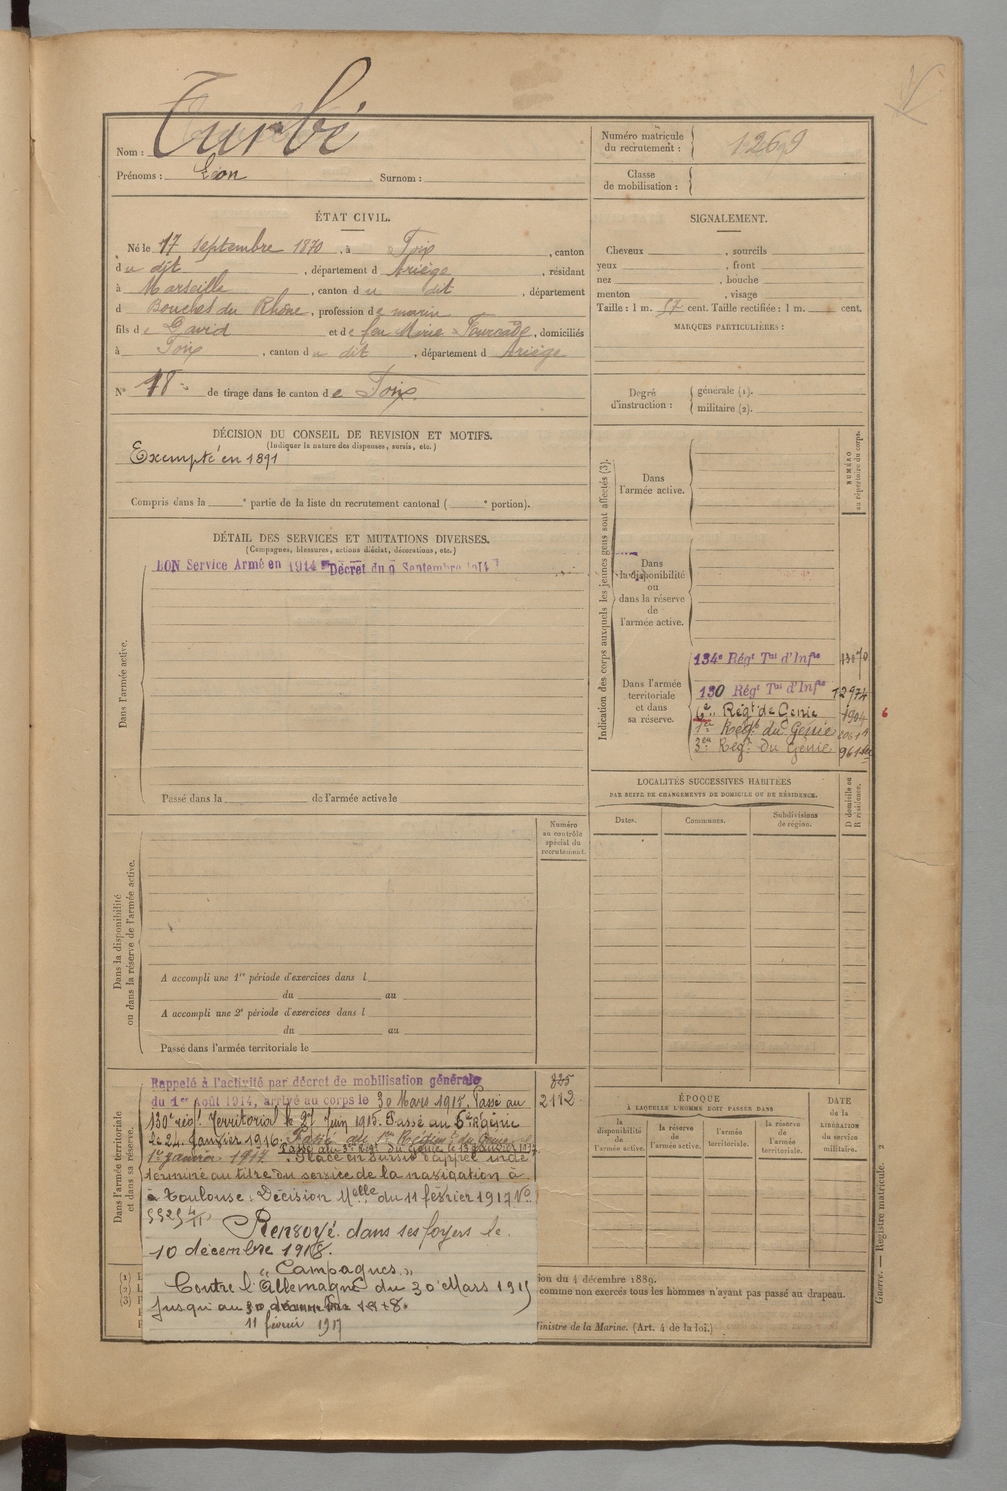 Turbé
Nom :
Prénoms : Léon Surnom :
Numéro matricule
du recrutement : 1269
Classe
de mobilisation :
ÉTAT CIVIL.
Né le 17 septembre 1870, à Foix, canton
du dit, département d Ariège, résidant
à Marseille, canton du dit, département
d Bouches du Rhône, profession de marin
fils de David et de feu Marie Fourcade, domiciliés
à Foix, canton du dit, département d Ariège
N° 18 de tirage dans le canton de Foix.
SIGNALEMENT.
Cheveux , sourcils
yeux , front
nez , bouche
menton , visage
Taille : 1 m. 57 cent. Taille rectifiée : 1 m. cent.
MARQUES PARTICULIÈRES :
Degré
d'instruction :
générale (1).
militaire (2).
DÉCISION DU CONSEIL DE REVISION ET MOTIFS.
(Indiquer la nature des dispenses, sursis, etc.)
Exempté en 1891
Compris dans la e partie de la liste du recrutement cantonal ( e portion).
DÉTAIL DES SERVICES ET MUTATIONS DIVERSES.
(Campagnes, blessures, actions d'éclat, décorations, etc.)
BON Service Armé en 1914 Décret du 9 Septembre 1914
Dans l'armée active.
Passé dans la de l'armée active le
Indication des corps auxquels les jeunes gens sont affectés (3).
NUMÉRO
au répertoire du corps.
Dans
l'armée active.
Dans
la disponibilité
ou
dans la réserve
de
l'armée active.
Dans l'armée
territoriale
et dans
sa réserve.
134e Régt Tal d'Infie
130 Régt Tal d'Infie 12974
6e Régt de Génie 1904
1er Régt du Génie
3e Régt du Génie
6
LOCALITÉS SUCCESSIVES HABITÉES
PAR SUITE DE CHANGEMENTS DE DOMICILE OU DE RÉSIDENCE.
D domicile ou
R résidence.
Dates.
Communes.
Subdivisions
de région.
Numéro
au contrôle
spécial du
recrutement.
Dans la disponibilité
ou dans la réserve de l'armée active.
A accompli une 1re période d'exercices dans l
du au
A accompli une 2e période d'exercices dans l
du au
Passé dans l'armée territoriale le
Dans l'armée territoriale
et dans sa réserve.
Rappelé à l'activité par décret de mobilisation générale
du 1er Août 1914, arrivé au corps le 30 Mars 1915. Passé au
130e régt Territorial le 27 Juin 1915. Passé au 6e Génie
le 24 Janvier 1916. Passé au 1er Régiment du Génie le
1er janvier 1917
Passé au 3e Régt du Génie le
Placé en sursis d'appel indé
terminé au titre du service de la navigation à
à Toulouse. Décision Melle du 11 février 1917 No
Renvoyé dans ses foyers le
10 décembre 1918.
"Campagnes"
Contre l'Allemagne du 30 Mars 1915
jusqu'au
11 février 1917
825
2112
ÉPOQUE
À LAQUELLE L'HOMME DOIT PASSER DANS
la
disponibilité
de
l'armée active.
la réserve
de
l'armée active.
l'armée
territoriale.
la réserve
de
l'armée
territoriale.
DATE
de la
LIBÉRATION
du service
militaire.
(1)
(2)
(3)
ion du 4 décembre 1889.
comme non exercés tous les hommes n'ayant pas passé au drapeau.
Ministre de la Marine. (Art. 4 de la loi.)
Guerre. — Registre matricule. 2